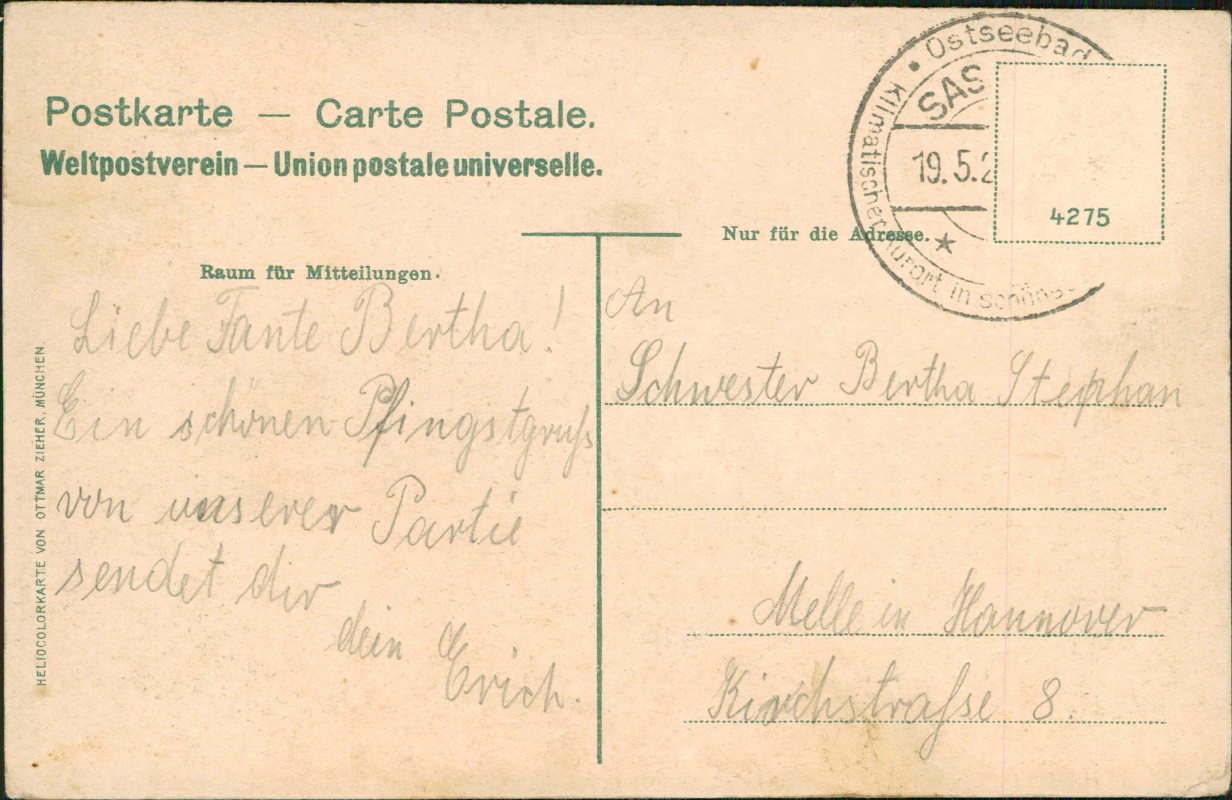 Postkarte — Carte Postale.
Weltpostverein — Union postale universelle.
Ostseebad
SAS
19.5.2
Klimatischer Kurort in schöns
4275
Nur für die Adresse.
Raum für Mitteilungen.
Liebe Tante Bertha!
Ein schönen Pfingstgruß
von unserer Partie
sendet dir
dein
Erich.
An
Schwester Bertha Stephan
Melle in Hannover
Kirchstraſse 8.
HELIOCOLORKARTE VON OTTMAR ZIEHER, MÜNCHEN.